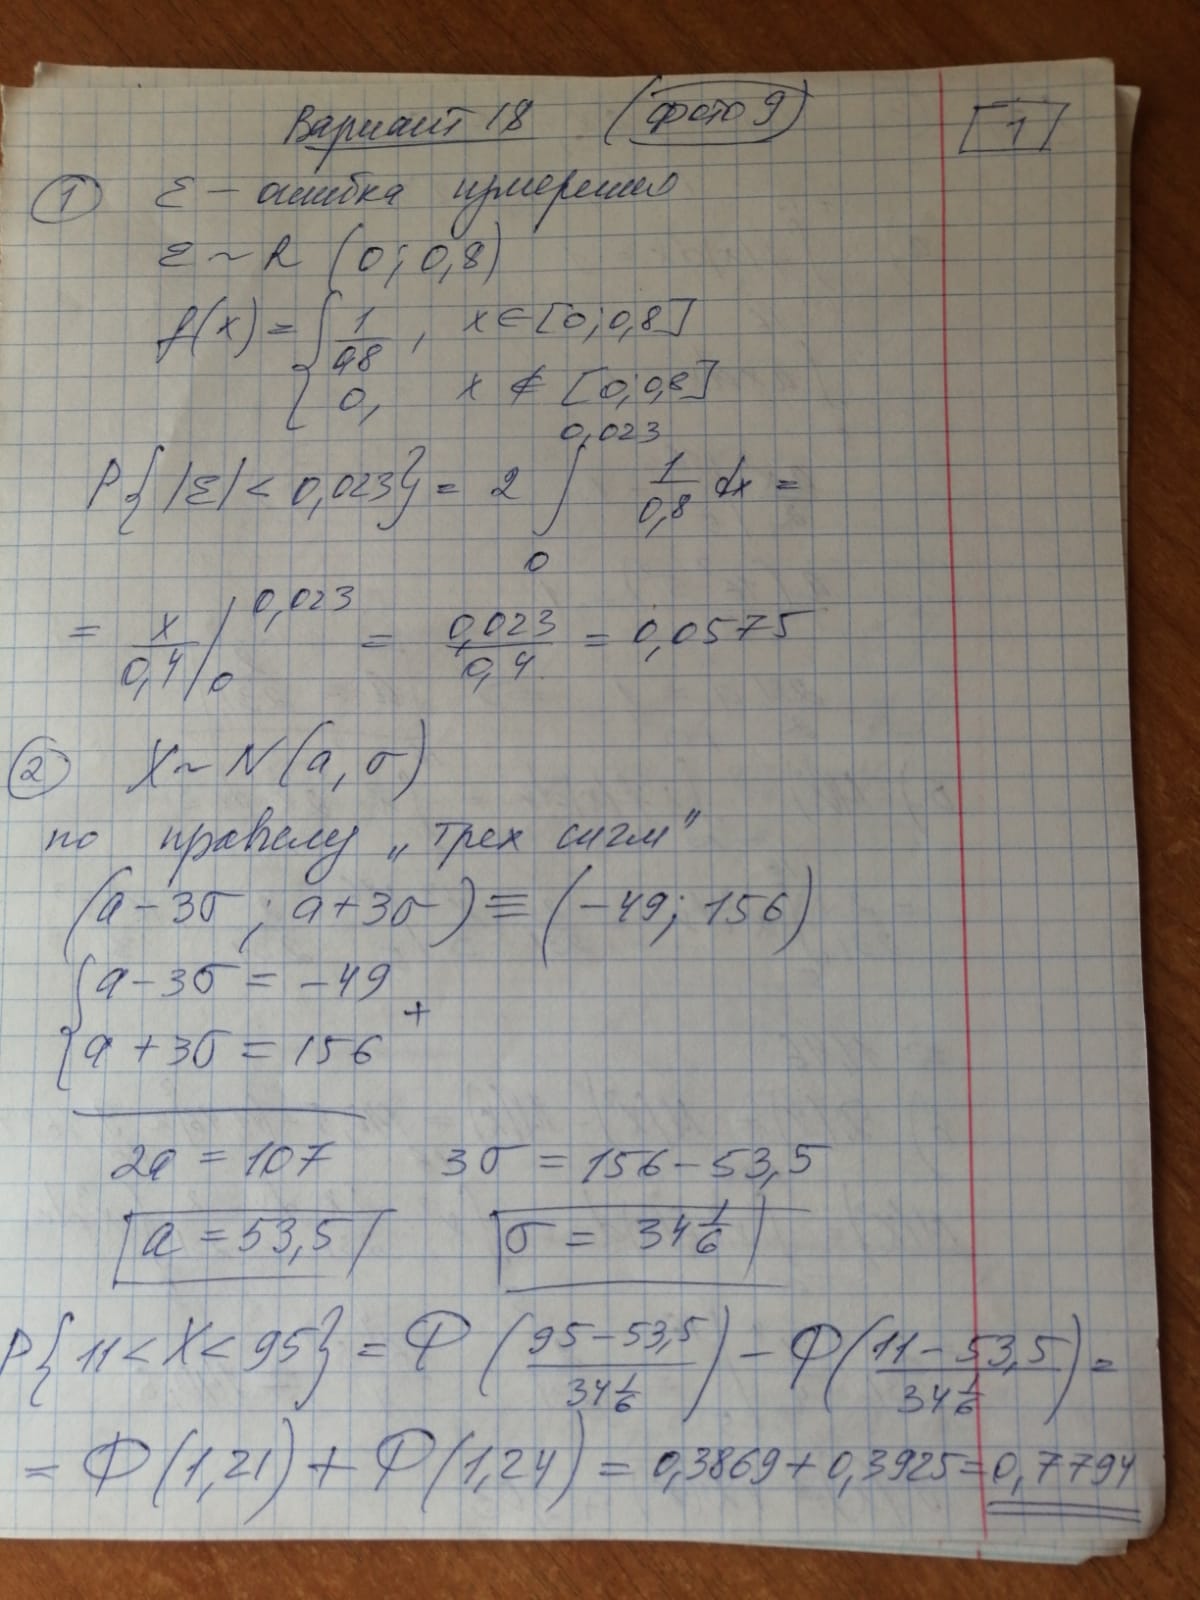 Вариант 18 (фото 9) 1
① ε – ошибка измерения
ε ~ R (0; 0,8)
f(x) = { 1/0,8 , x ∈ [0; 0,8]
0, x ∉ [0; 0,8]
P{|ε| < 0,023} = 2 ∫₀^0,023 1/0,8 dx =
= x/0,4 |₀^0,023 = 0,023/0,4 = 0,0575
② X ~ N(a, σ)
по правилу „трех сигм"
(a – 3σ ; a + 3σ) ≡ (–49; 156)
{ a – 3σ = –49
a + 3σ = 156 +
2a = 107 3σ = 156 – 53,5
a = 53,5 σ = 34 1/6
P{11 < X < 95} = Φ((95 – 53,5)/(34 1/6)) – Φ((11 – 53,5)/(34 1/6)) =
= Φ(1,21) + Φ(1,24) = 0,3869 + 0,3925 = 0,7794